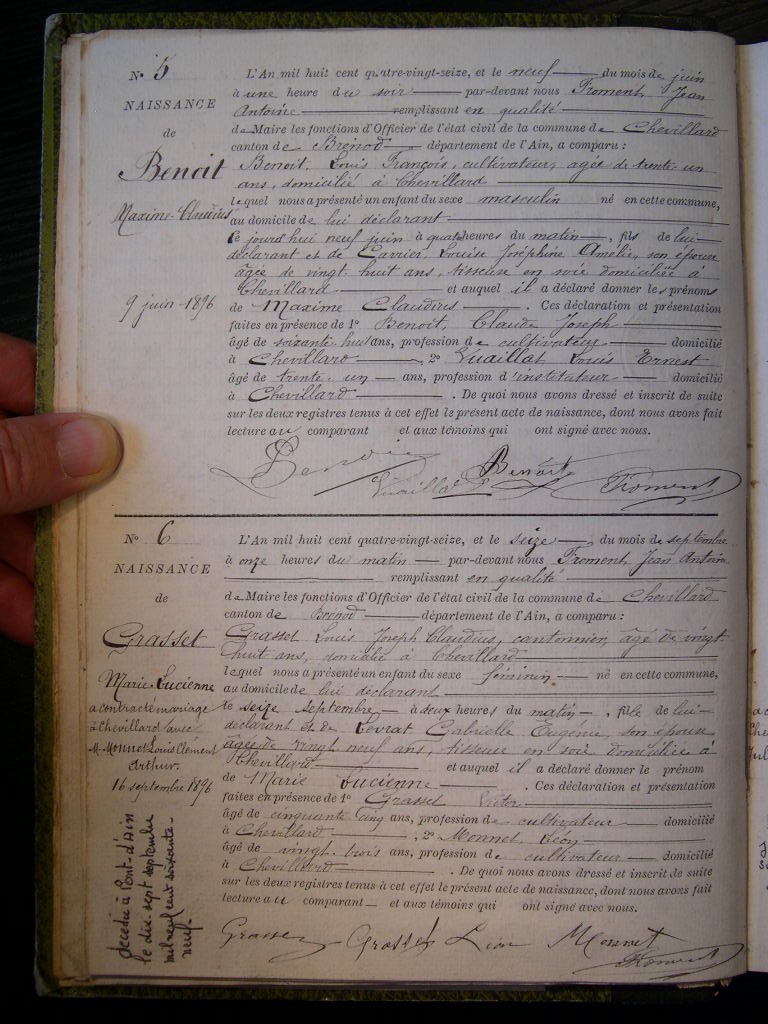 N° 5
NAISSANCE
de
Benoit
Maxime-Claudius
9 juin 1896
L'An mil huit cent quatre-vingt-seize, et le neuf du mois de juin
à une heure du soir par-devant nous Froment, Jean
Antoine remplissant en qualité
de Maire les fonctions d'Officier de l'état civil de la commune de Chevillard
canton de Brénod département de l'Ain, a comparu :
Benoit, Louis François, cultivateur, agée de trente un
ans, domicilié à Chevillard
lequel nous a présenté un enfant du sexe masculin né en cette commune,
au domicile de lui déclarant
le jourd'hui neuf juin à quatre heures du matin, fils de lui
déclarant et de Carrier, Louise Joséphine Amélie, son épouse
âgée de vingt huit ans, tisseuse en soie domiciliée à
Chevillard et auquel il a déclaré donner les prénoms
de Maxime Claudius. Ces déclaration et présentation
faites en présence de 1° Benoit, Claude Joseph
âgé de soixante huit ans, profession de cultivateur domicilié
à Chevillard, 2° Vuaillat Louis Ernest
âgé de trente un ans, profession d'instituteur domicilié
à Chevillard. De quoi nous avons dressé et inscrit de suite
sur les deux registres tenus à cet effet le présent acte de naissance, dont nous avons fait
lecture au comparant et aux témoins qui ont signé avec nous.
Benoit Vuaillat Benoit Froment
N° 6
NAISSANCE
de
Grasset
Marie-Lucienne
a contracté mariage
à Chevillard avec
M. Monnet Louis Clément
Arthur.
16 septembre 1896
décédée à Pont-d'Ain
le dix-sept septembre
mil neuf cent soixante-
neuf.
L'An mil huit cent quatre-vingt-seize, et le seize du mois de septembre
à onze heures du matin par-devant nous Froment, Jean Antoine
remplissant en qualité
de Maire les fonctions d'Officier de l'état civil de la commune de Chevillard
canton de Brénod département de l'Ain, a comparu :
Grasset Louis Joseph Claudius, cantonnier, âgé de vingt
huit ans, domicilié à Chevillard
lequel nous a présenté un enfant du sexe féminin né en cette commune,
au domicile de lui déclarant
le seize septembre à deux heures du matin, fille de lui
déclarant et de Levrat Gabrielle Eugénie, son épouse
âgée de vingt neuf ans, tisseuse en soie domiciliée à
Chevillard et auquel il a déclaré donner le prénom
de Marie Lucienne. Ces déclaration et présentation
faites en présence de 1° Grasset Victor
âgé de cinquante cinq ans, profession de cultivateur domicilié
à Chevillard, 2° Monnet, Léon
âgé de vingt trois ans, profession de cultivateur domicilié
à Chevillard. De quoi nous avons dressé et inscrit de suite
sur les deux registres tenus à cet effet le présent acte de naissance, dont nous avons fait
lecture au comparant et aux témoins qui ont signé avec nous.
Grasset Grasset Léon Monnet
Froment